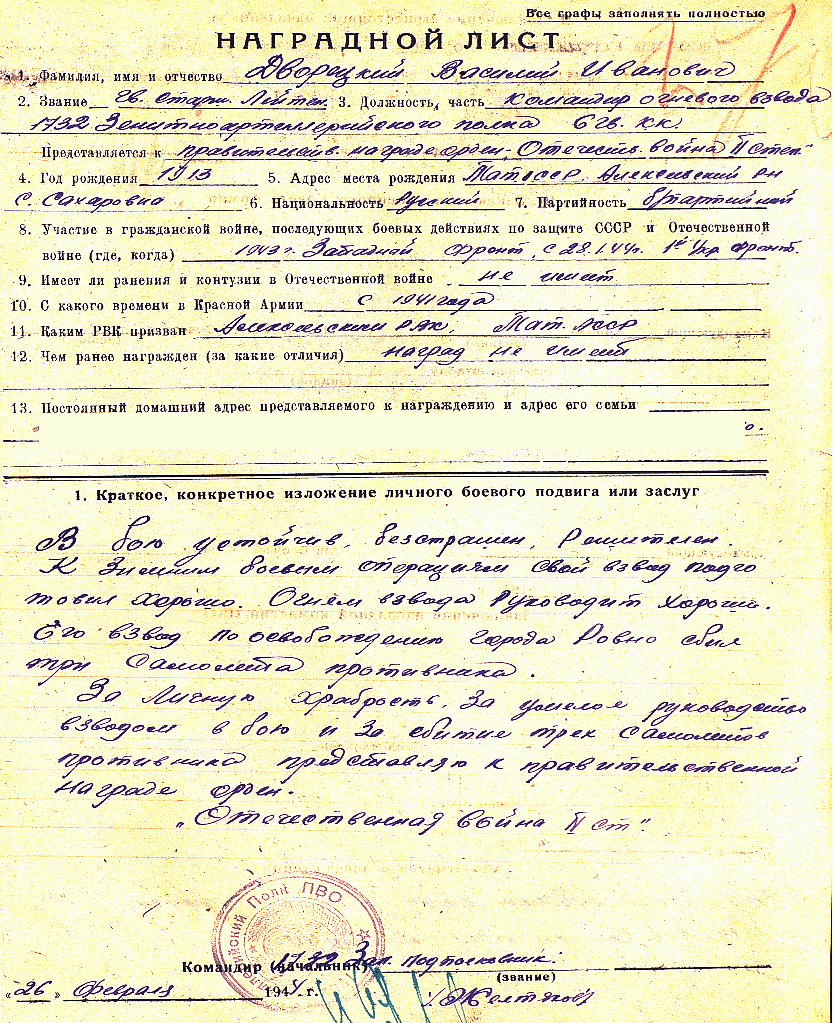 Все графы заполнять полностью
НАГРАДНОЙ ЛИСТ
1. Фамилия, имя и отчество Дворецкий Василий Иванович
2. Звание Гв. Старш. Лейтен. 3. Должность, часть Командир огневого взвода
1732 Зенитноартеллерийского полка 6 гв. кк.
Представляется к правительств. награде орден „Отечеств. война II степ"
4. Год рождения 1913 5. Адрес места рождения ТатАССР. Алексеевский рн
С. Сахаровка 6. Национальность Русский 7. Партийность б/партийной
8. Участие в гражданской войне, последующих боевых действиях по защите СССР и Отечественной
войне (где, когда) 1943 г. Западной Фронт, с 28.1.44г. 1й Укр. фронт.
9. Имеет ли ранения и контузии в Отечественной войне не имеет
10. С какого времени в Красной Армии с 1941 года
11. Каким РВК призван Алексеевским РВК, Тат. АССР
12. Чем ранее награжден (за какие отличия) наград не имеет
13. Постоянный домашний адрес представляемого к награждению и адрес его семьи
1. Краткое, конкретное изложение личного боевого подвига или заслуг
В бою устойчив, безстрашен, Решителен.
К Зимним боевым операциям свой взвод подго
товил хорошо. Огнем взвода Руководит хорошо.
Его взвод по освобождению города Ровно сбил
три самолета противника.
За Личную храбрость, За умелое руководство
взводом в бою и За сбитие трех самолетов
противника представляю к правительственной
награде орден.
„Отечественная война II ст".
Полк ПВО
Командир (начальник) 1732 Зап. Подполковник:
(звание)
„26" Февраля 1944 г. /Желтяков/